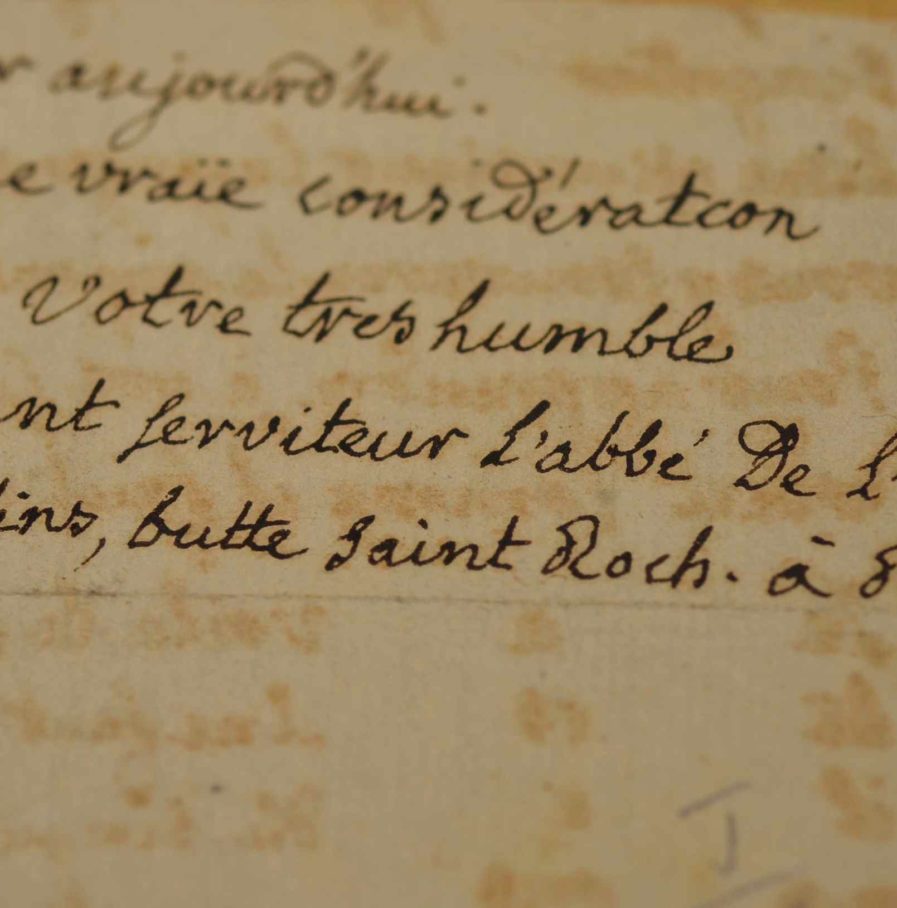 aujourd'hui.
vraïe considération
Votre tres humble
nt serviteur L'abbé De L'
ins, butte saint Roch. à